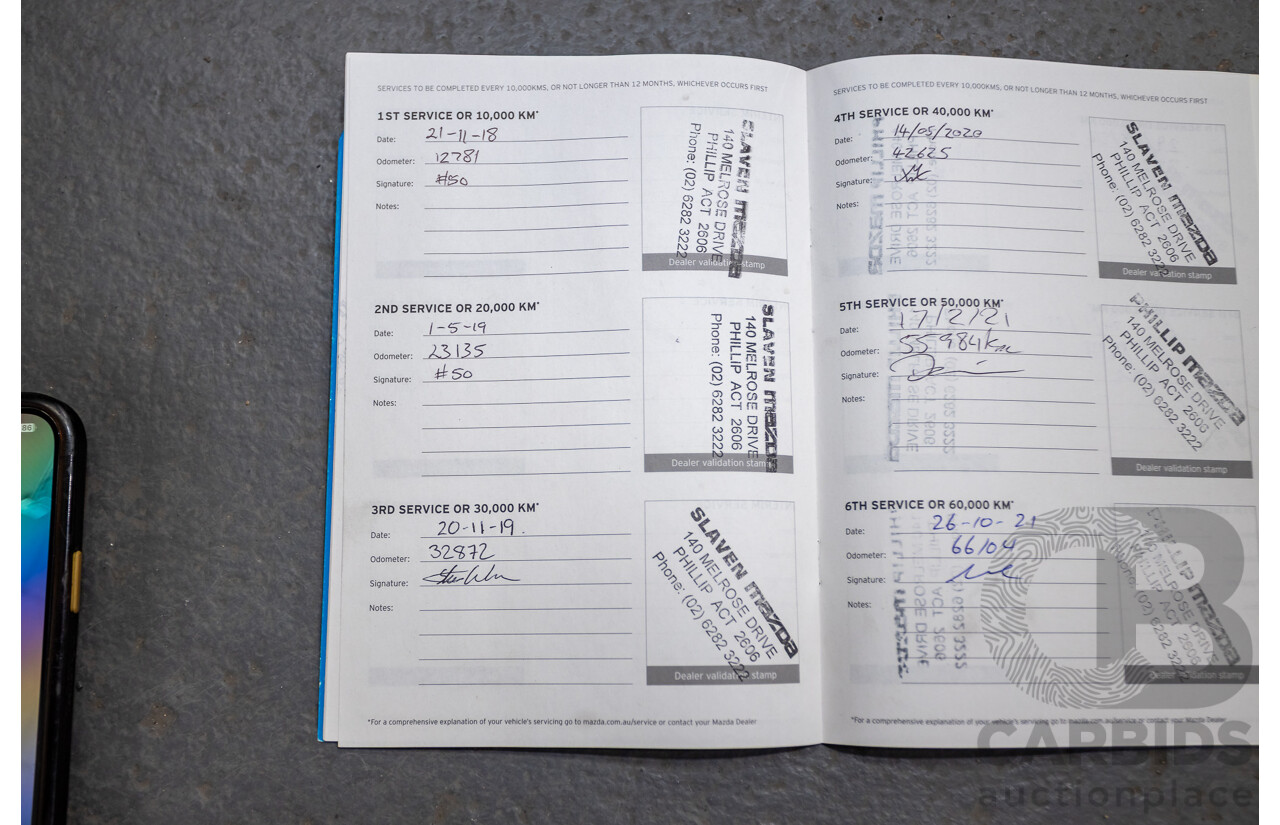 SERVICES TO BE COMPLETED EVERY 10,000KMS, OR NOT LONGER THAN 12 MONTHS, WHICHEVER OCCURS FIRST
1ST SERVICE OR 10,000 KM*
Date: 21-11-18
Odometer: 12781
Signature: #50
Notes:
SLAVEN mazda
140 MELROSE DRIVE
PHILLIP ACT 2606
Phone: (02) 6282 3222
Dealer validation stamp
2ND SERVICE OR 20,000 KM*
Date: 1-5-19
Odometer: 23135
Signature: #50
Notes:
SLAVEN mazda
140 MELROSE DRIVE
PHILLIP ACT 2606
Phone: (02) 6282 3222
Dealer validation stamp
3RD SERVICE OR 30,000 KM*
Date: 20-11-19.
Odometer: 32872
Signature:
Notes:
SLAVEN mazda
140 MELROSE DRIVE
PHILLIP ACT 2606
Phone: (02) 6282 3222
Dealer validation stamp
*For a comprehensive explanation of your vehicle's servicing go to mazda.com.au/service or contact your Mazda Dealer
SERVICES TO BE COMPLETED EVERY 10,000KMS, OR NOT LONGER THAN 12 MONTHS, WHICHEVER OCCURS FIRST
4TH SERVICE OR 40,000 KM*
Date: 14/05/2020
Odometer: 42625
Signature:
Notes:
SLAVEN mazda
140 MELROSE DRIVE
PHILLIP ACT 2606
Phone: (02) 6282 3222
Dealer validation stamp
5TH SERVICE OR 50,000 KM*
Date: 17/2/21
Odometer: 55984km
Signature:
Notes:
PHILLIP mazda
140 MELROSE DRIVE
PHILLIP ACT 2606
Phone: (02) 6282 3222
Dealer validation stamp
6TH SERVICE OR 60,000 KM*
Date: 26-10-21
Odometer: 66104
Signature:
Notes:
PHILLIP mazda
140 MELROSE DRIVE
PHILLIP ACT 2606
Phone: (02) 6282 3222
Dealer validation stamp
*For a comprehensive explanation of your vehicle's servicing go to mazda.com.au/service or contact your Mazda Dealer
86
CARBIDS
auctionplace